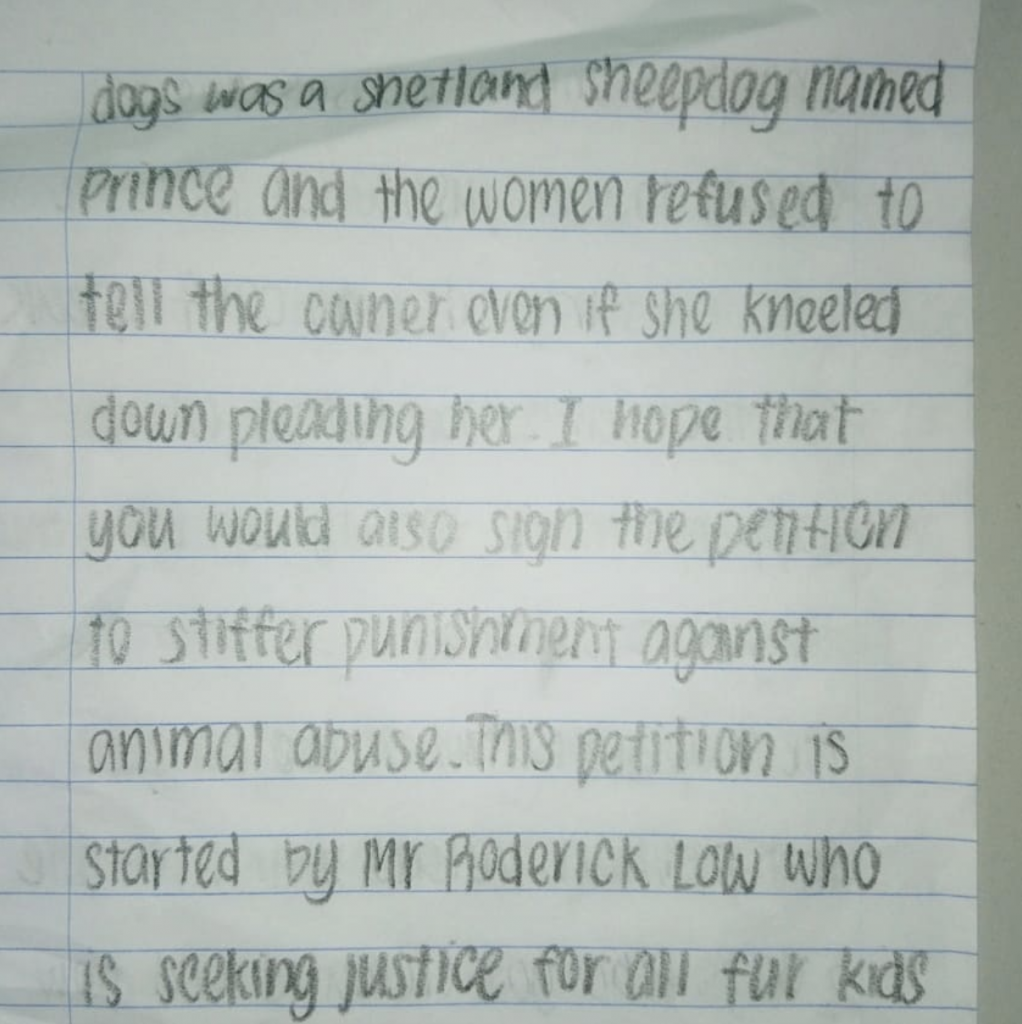 dogs was a shetland sheepdog named
prince and the women refused to
tell the owner even if she kneeled
down pleading her. I hope that
you would also sign the petition
to stiffer punishment against
animal abuse. This petition is
started by Mr Roderick Low who
is seeking justice for all fur kids